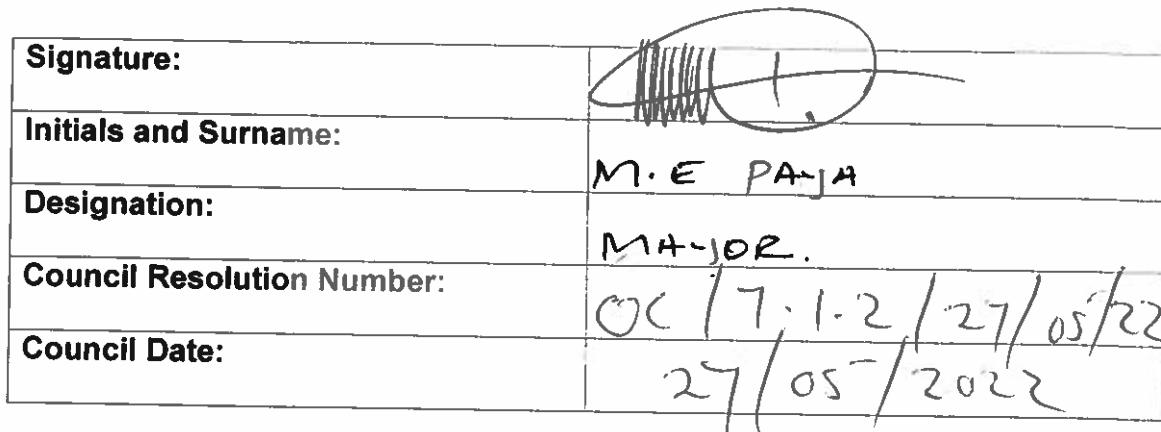 Signature:
Initials and Surname:
M.E PAYA
Designation:
MAYOR.
Council Resolution Number:
OC/7.1.2/27/05/22
Council Date:
27/05/2022